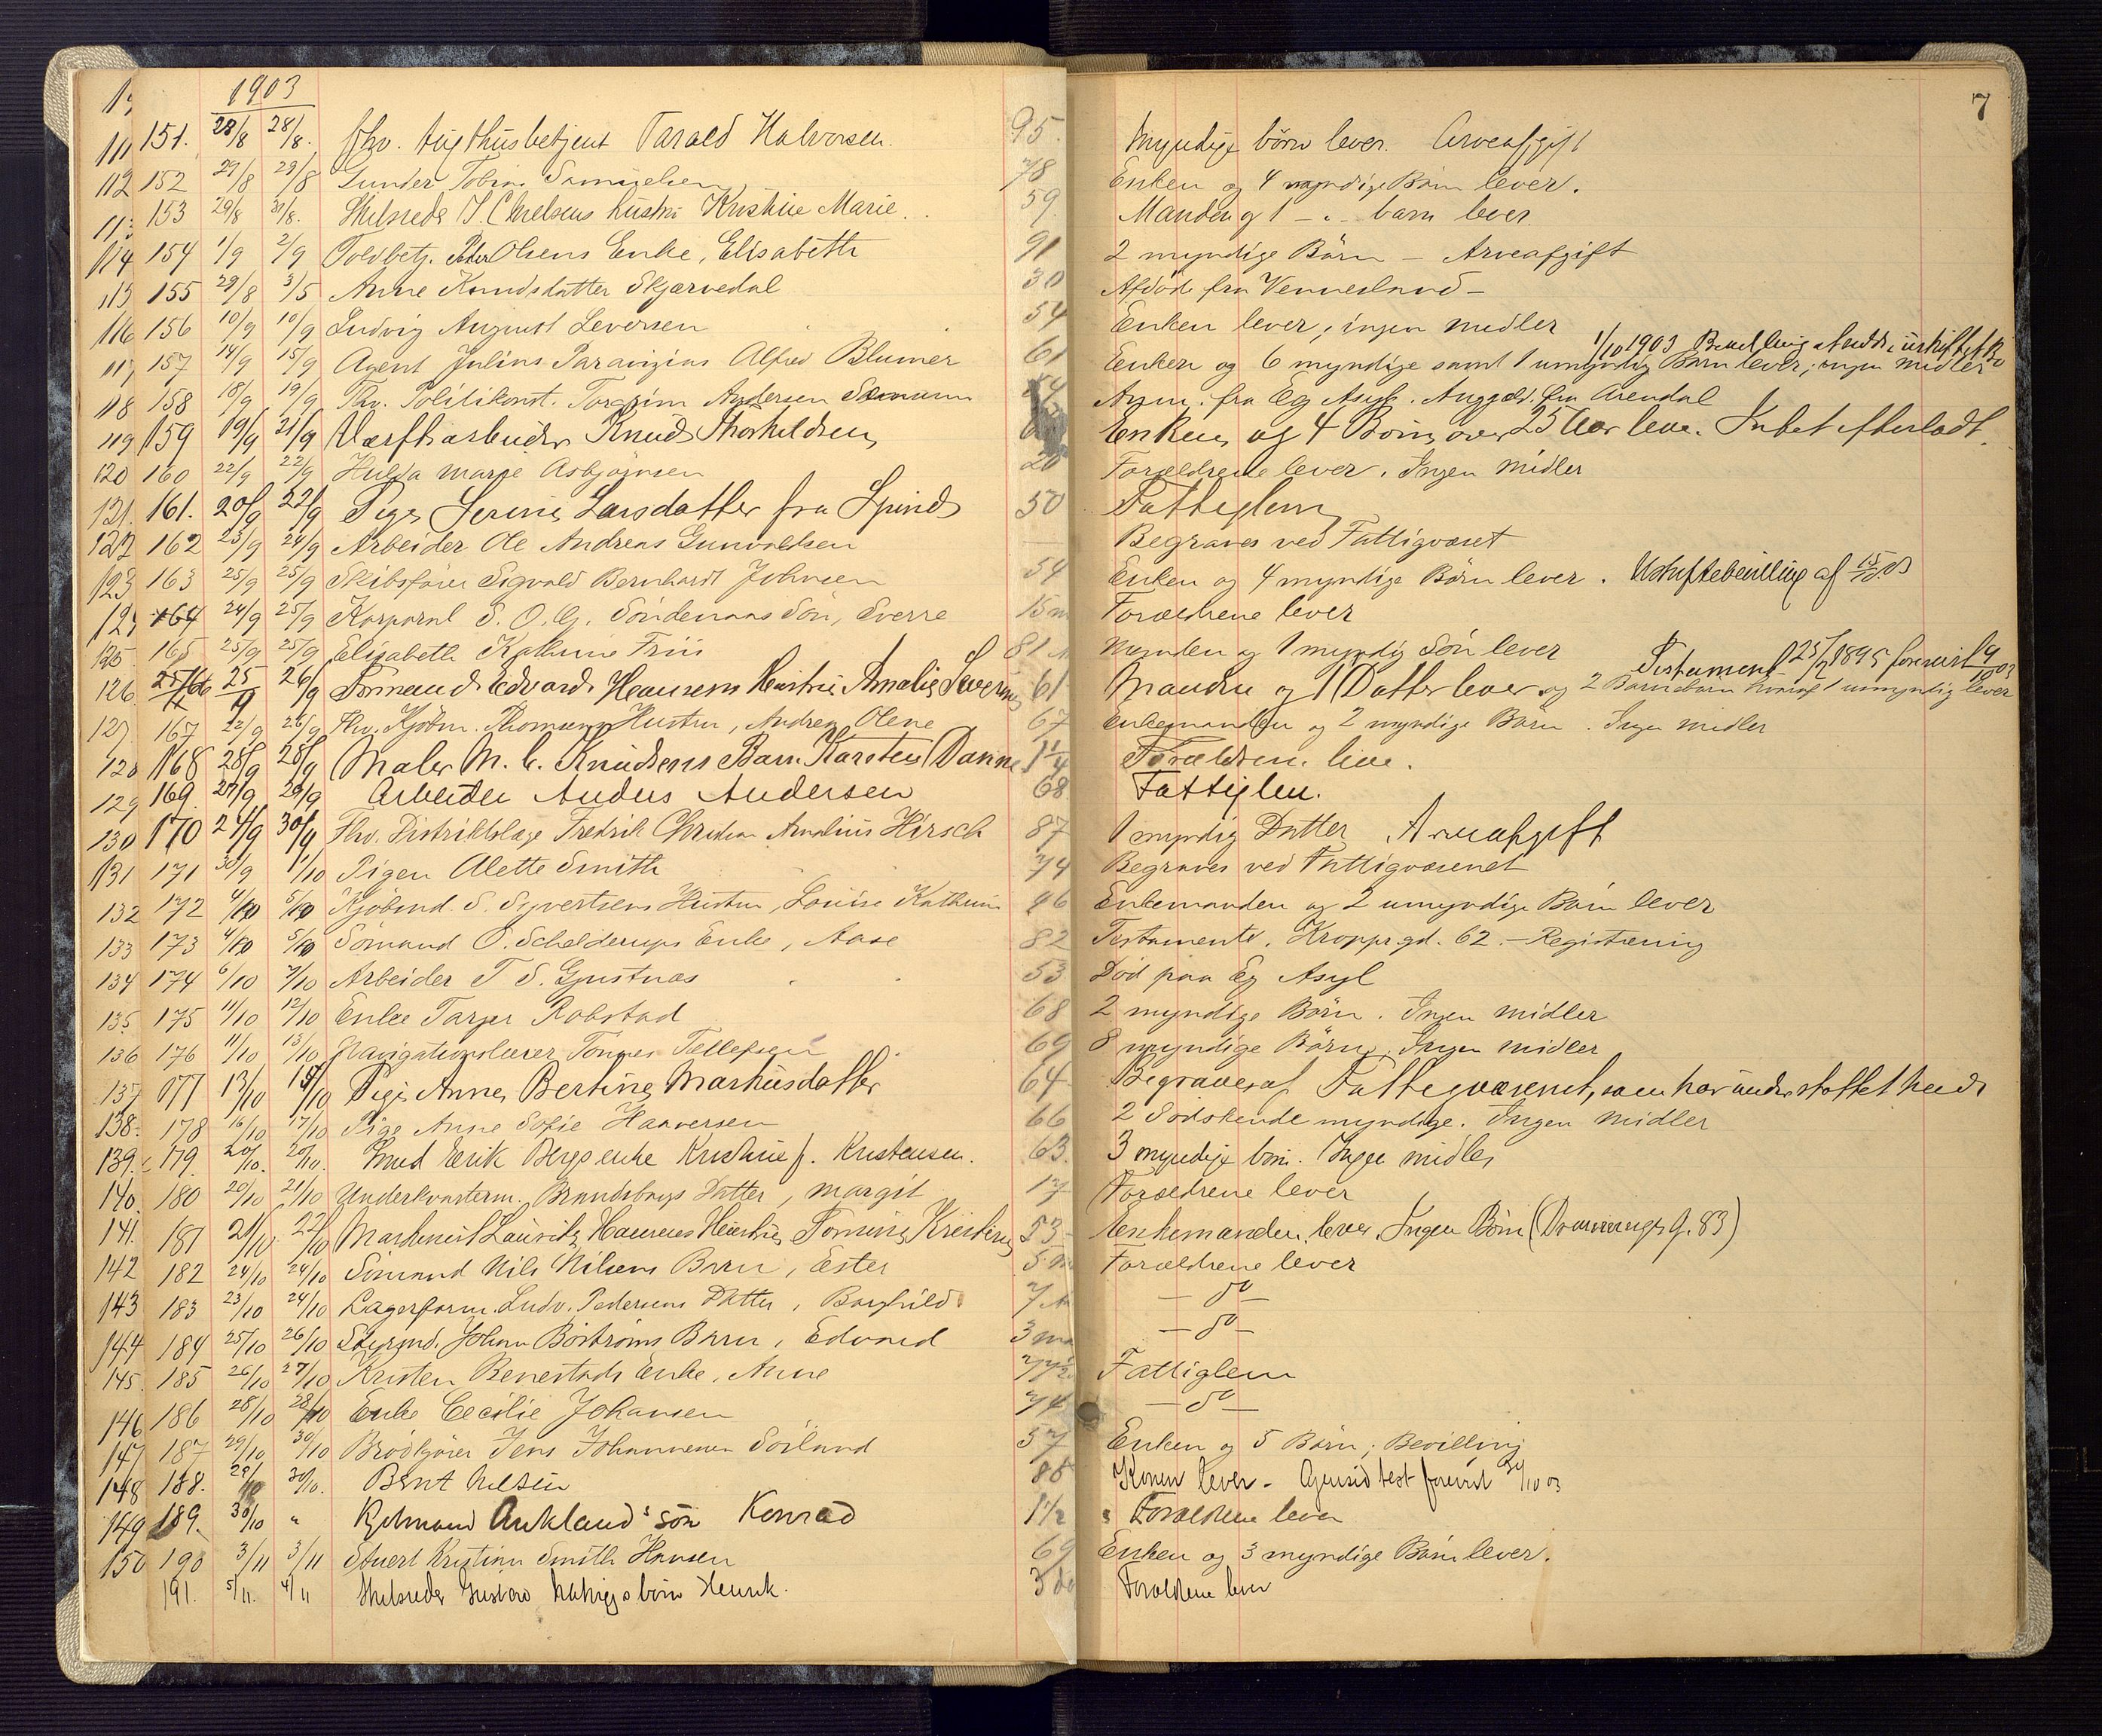 7
1903
151. 28/8 28/8. fhv. tugthusbetjent Tarald Halvorsen. 95. Myndige börn lever. Arveafgift
112 152 29/8 29/8 Gunder Tobias Samuelsen 78 Enken og 4 myndige Börn lever.
153 29/8 31/8. hustru Kristine Marie. 59. Manden og 1 - " - barn lever
114 154 1/9 2/9 Toldbetj. Peder Olsens Enke, Elisabeth 91 2 myndige Börn - Arveafgift
115 155 29/8 3/5 Anne Knudsdatter Skjærvedal 30 Afdöd fra Vennesland -
116 156 10/9 10/9 Ludvig August Leversen 54 Enken lever; ingen midler
1/10 1903
117 157 14/9 15/9 Agent Julius Alfred Blumer 61 Enken og 6 myndige samt 1 umyndig Barn lever; ingen midler
118 158 18/9 19/9 Fhv. Politikonst. Andersen fra Eg Asyl. fra Arendal
119 159 19/9 21/9 Værftsarbeider Knud Thorkildsen Enken og 4 Börn over 25 Aar lever. Intet efterladt.
120 160 22/9 22/9 Hulda Marie Asbjörnsen 20 Forældrene lever. Ingen midler
121. 161. 20/9 22/9 Pige Serine Larsdatter fra Spind 50 Fattiglem
122 162 23/9 24/9 Arbeider Ole Andreas Gunvaldsen Begraves ved Fattigvæset
123 163 25/9 25/9 Skibsförer Sigvald Bernhardt Johnsen 54 Enken og 4 myndige Börn lever. Uskiftebevilling af
164 24/9 25/9 Korporal S. O. G. Söndenaas Sön, Sverre 15 m Forældrene lever
125 165 25/9 25/9 Elisabeth Kathrine Friis 81 Manden og 1 myndig Sön lever
Testament 1895
126. 166 25/9 26/9 Sömand Edvard Hansens Hustru Amalie Severine 61 Manden og 1 Datter lever og 2 Barnebarn hvoraf 1 umyndig lever
127. 167 22/9 26/9 Fhv. Kjöbm. Thomsens Hustru, Andrea Olene 67 Enkemanden og 2 myndige Börn. Ingen midler
128 168 28/9 28/9 Maler M. C. Knudsens Barn Karsten 1 1/4 Forældrene lever.
129 169. 27/9 28/9 Arbeider Anders Andersen 68 Fattiglem.
130 170 24/9 30/9 Fhv. Distriktslæge Fredrik Christian Amalius Hirsch 87 1 myndig Datter Arveafgift
131 171 30/9 1/10 Pigen Alette Smith 74 Begraves ved Fattigvæsenet
132 172 4/10 5/10 Kjöbmd. S. Syvertsens Hustru, Louise Kathrine 46 Enkemanden og 2 umyndige Börn lever
133 173 4/10 5/10 Sömand O. Schelderups Enke, Aase 82 Testamente. Kroppr.gd. 62. - Registrering
134 174 6/10 7/10 Arbeider T. S. Gjustnæs 53 Död paa Eg Asyl
135 175 11/10 12/10 Enke Tarjer Robstad 68 2 myndige Börn. Ingen midler
136 176 11/10 13/10 Navigationslærer Tönnes Tellefsen 69 8 myndige Börn. Ingen midler
137 177 13/10 15/10 Pige Anne Bertine Markusdatter 64 Begraves af Fattigvæsenet, som har understöttet hende
138. 178 16/10 17/10 Pige Anne Sofie Haaversen 66 2 Södskende myndige. Ingen midler
139. 179. 20/10. 20/10. Smed Erik Bergs enke Kristine f. Kristensen. 63. 3 myndige börn. Ingen midler
140. 180 20/10 21/10 Underkvarterm. Brandsbergs Datter, Margit 17 Forældrene lever
141. 181 21/10 22/10 Maskinist Lauritz Hansens Hustru Tomine Kristine 53 Enkemanden lever. Ingen Börn (Dronningsg. 83)
142 182 24/10 24/10 Sömand Nils Nilsens Barn, Ester 5 m Forældrene lever
143 183 23/10 24/10 Lagerform. Ludv. Pedersens Datter, Borghild 7 - do -
144 184 25/10 26/10 Styrmd. Johan Böströms Barn, Edvard 3 - do -
145. 185 26/10 27/10 Kristen Benestads Enke, Anne 77 1/2 Fattiglem
146 186 28/10 28/10 Enke Cecilie Johansen 74 - do -
147 187 29/10 30/10 Brödkjörer Jens Johannesen Sörland 57 Enken og 5 Börn; Bevilling
148 188. 29/10 30/10. Bernt Nilsen 85 Konen lever - Gjensid test forevist 30/10 03
149 189. 30/10 " Aukland's sön Konrad 1 1/2 Forældrene lever
150 190 3/11 3/11 Stuert Kristian Smith Hansen 69 Enken og 3 myndige Börn lever.
191. 5/11. 4/11 Gustav barn Henrik. 3 Forældrene lever